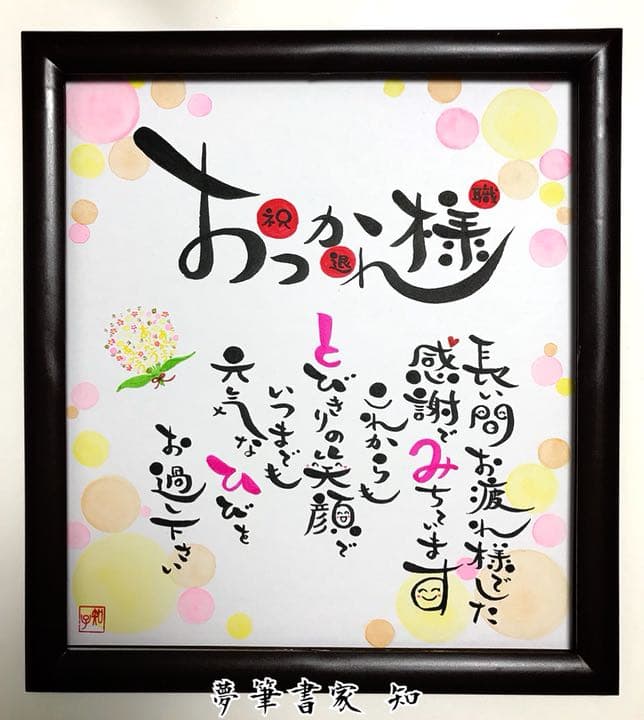 おつかれ様
祝
退
職
長い間お疲れ様でした
感謝でみちています
これからも
とびきりの笑顔で
いつまでも
元気なひびを
お過し下さい
夢筆書家 知